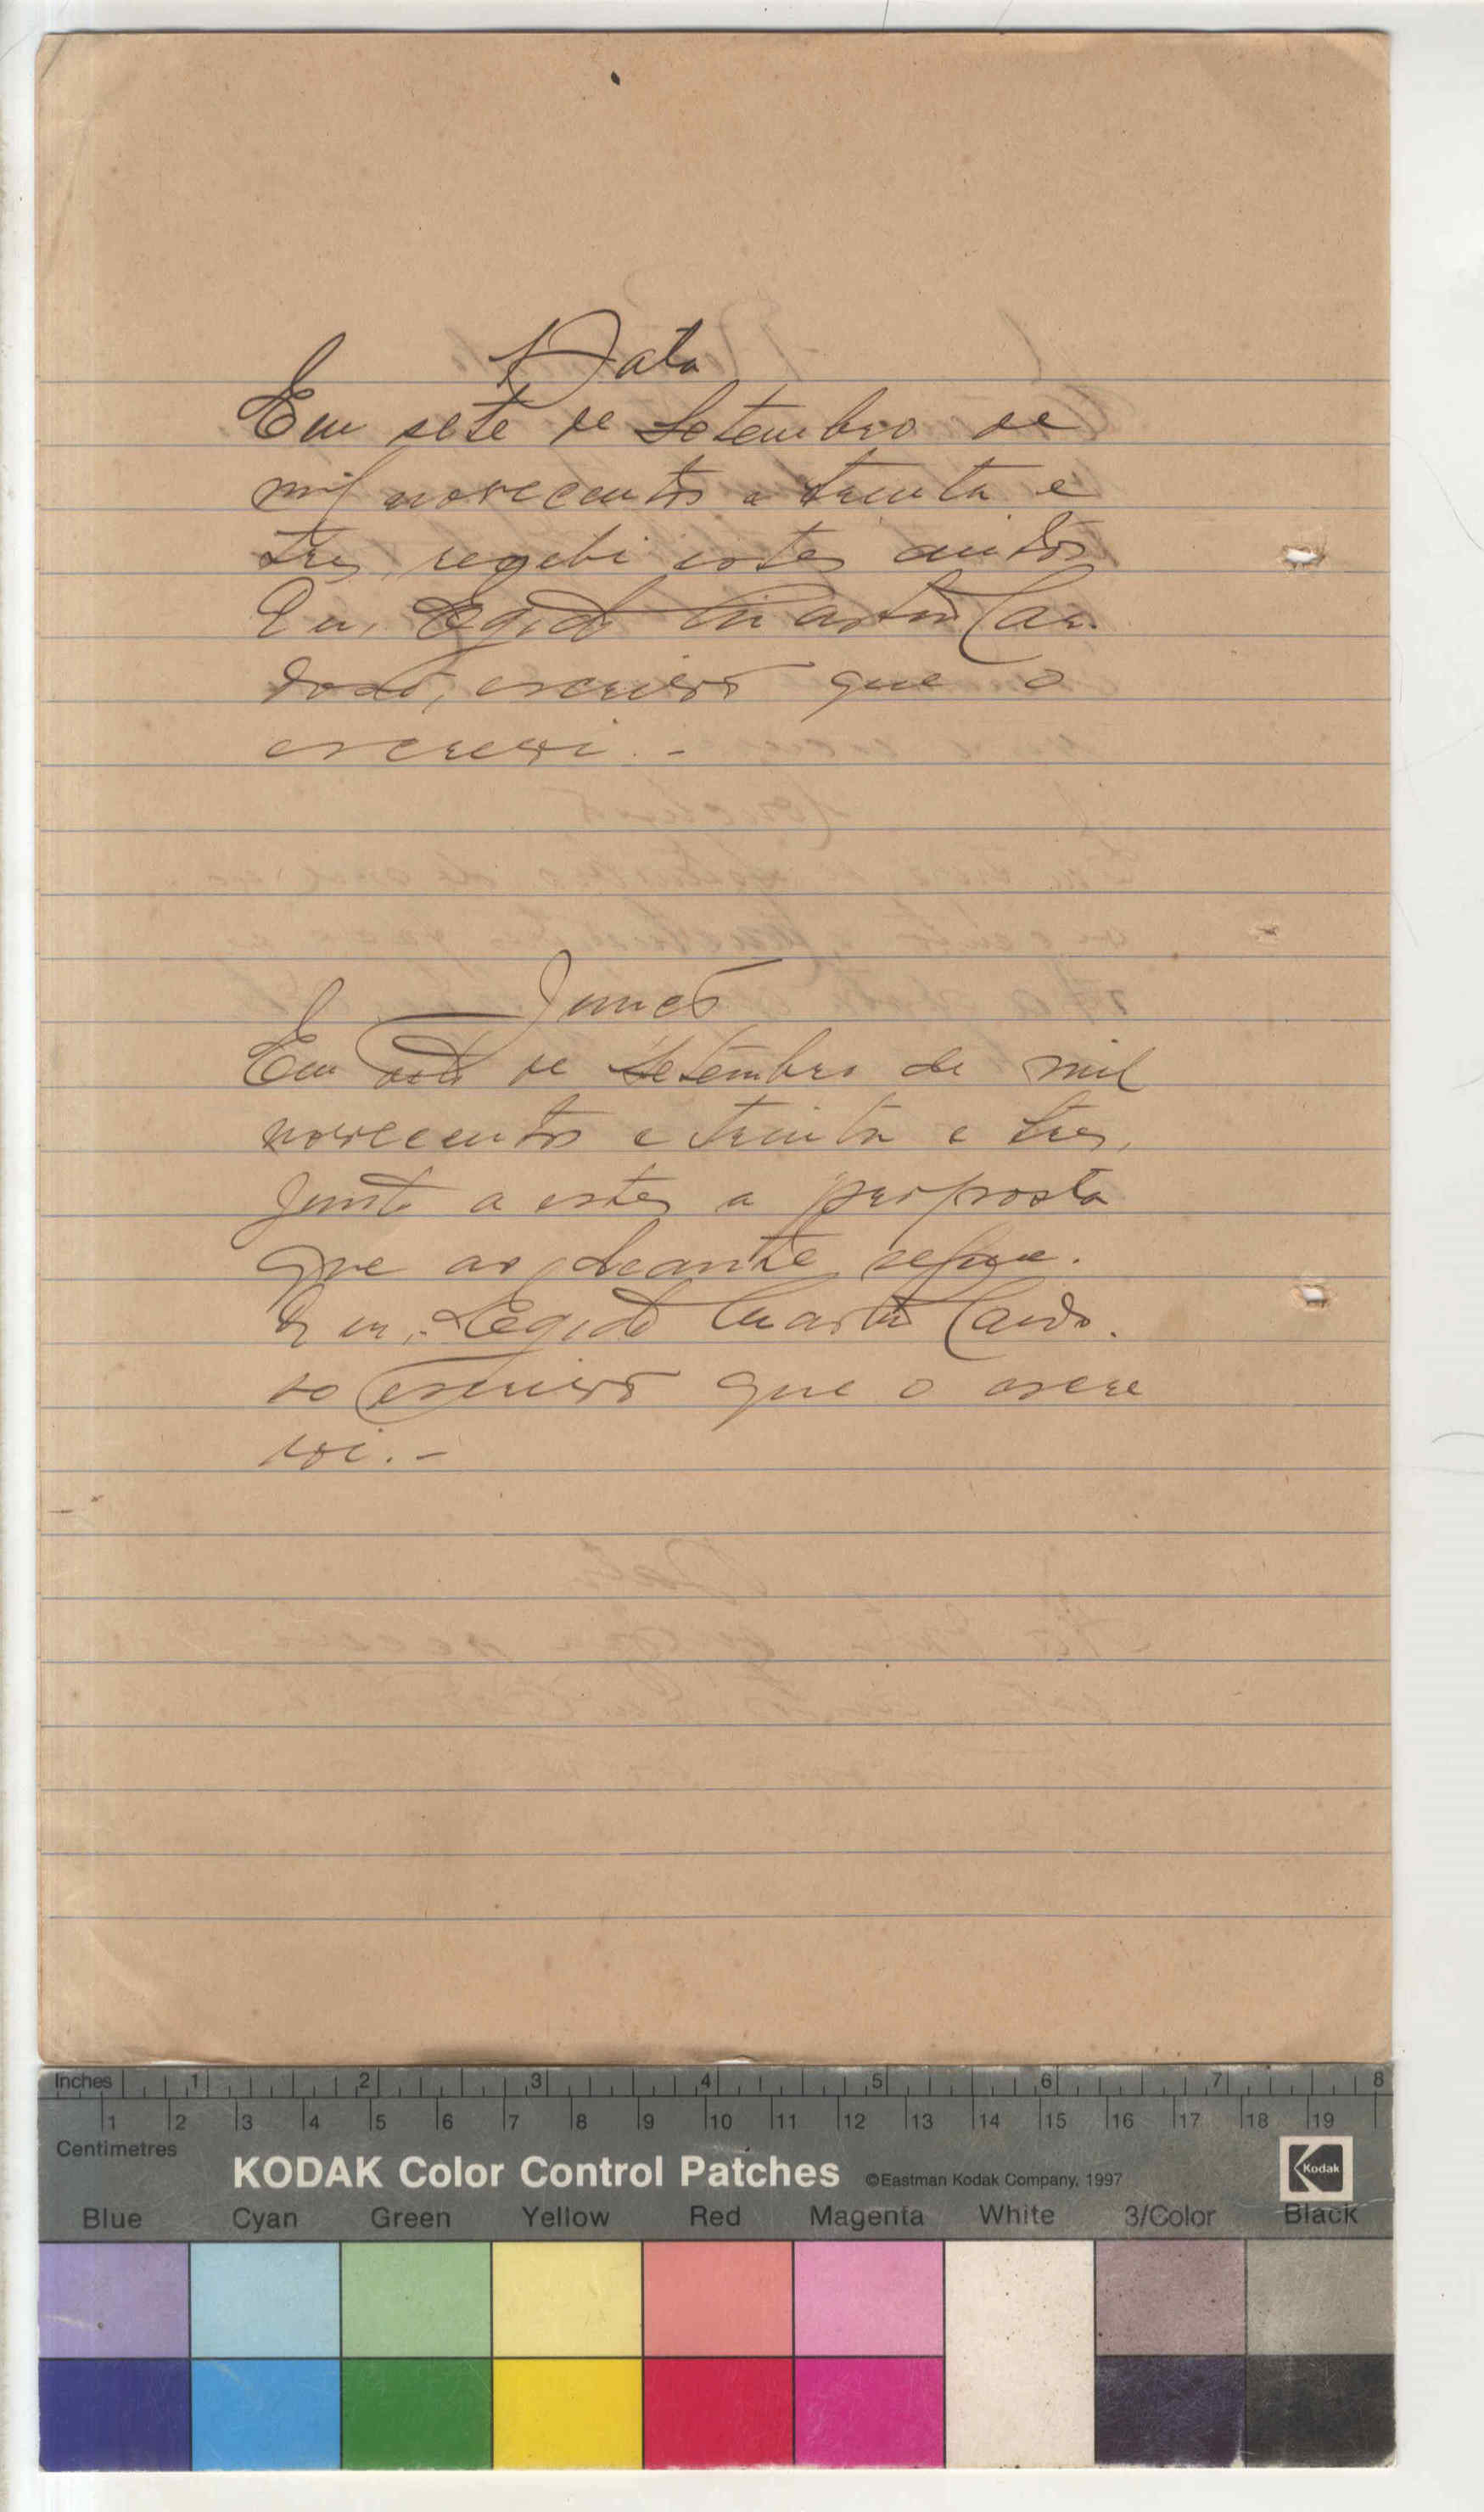 Data
Em sete de Setembro de
mil novecentos e trinta e
tres, recebi estes autos
Eu, Egidio Martins Car-
doso, escrivão que o
escrevi. -
Juncção
Em oito de Setembro de mil
novecentos e trinta e tres,
junto a estes a proposta
que ao deante segue.
Eu, Egidio Martins Cardo-
so escrivão que o escre
vi. -
Inches 1 2 3 4 5 6 7 8
1 2 3 4 5 6 7 8 9 10 11 12 13 14 15 16 17 18 19
Centimetres
KODAK Color Control Patches ©Eastman Kodak Company, 1997 Kodak
Blue Cyan Green Yellow Red Magenta White 3/Color Black